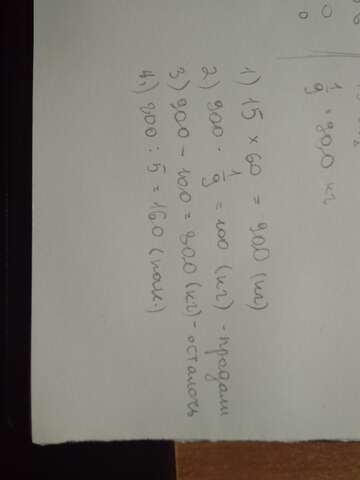 1/9 · 900 кг
1) 15 × 60 = 900 (кг)
2) 900 · 1/9 = 100 (кг) - продали
3) 900 - 100 = 800 (кг) - осталось
4) 800 : 5 = 160 (пак.)